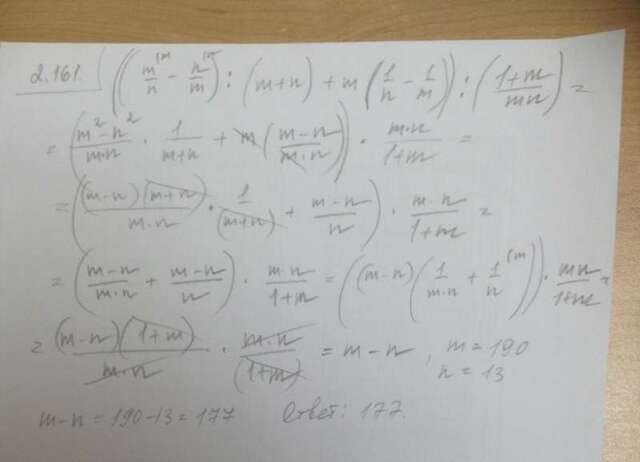 2.161. ((m/n - n/m) : (m+n) + m (1/n - 1/m)) : (1+m/mn) =
= (m²-n²/m·n · 1/m+n + m (m-n/m·n)) · m·n/1+m =
= ((m-n)(m+n)/m·n · 1/(m+n) + m-n/n) · m·n/1+m =
= (m-n/m·n + m-n/n) · m·n/1+m = ((m-n)(1/m·n + 1/n)) · mn/1+m =
= (m-n)(1+m)/m·n · m·n/(1+m) = m-n, m=190
n=13
m-n=190-13=177 Ответ: 177.